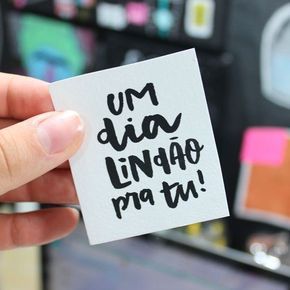 UM
dia
LINDÃO
pra tu!